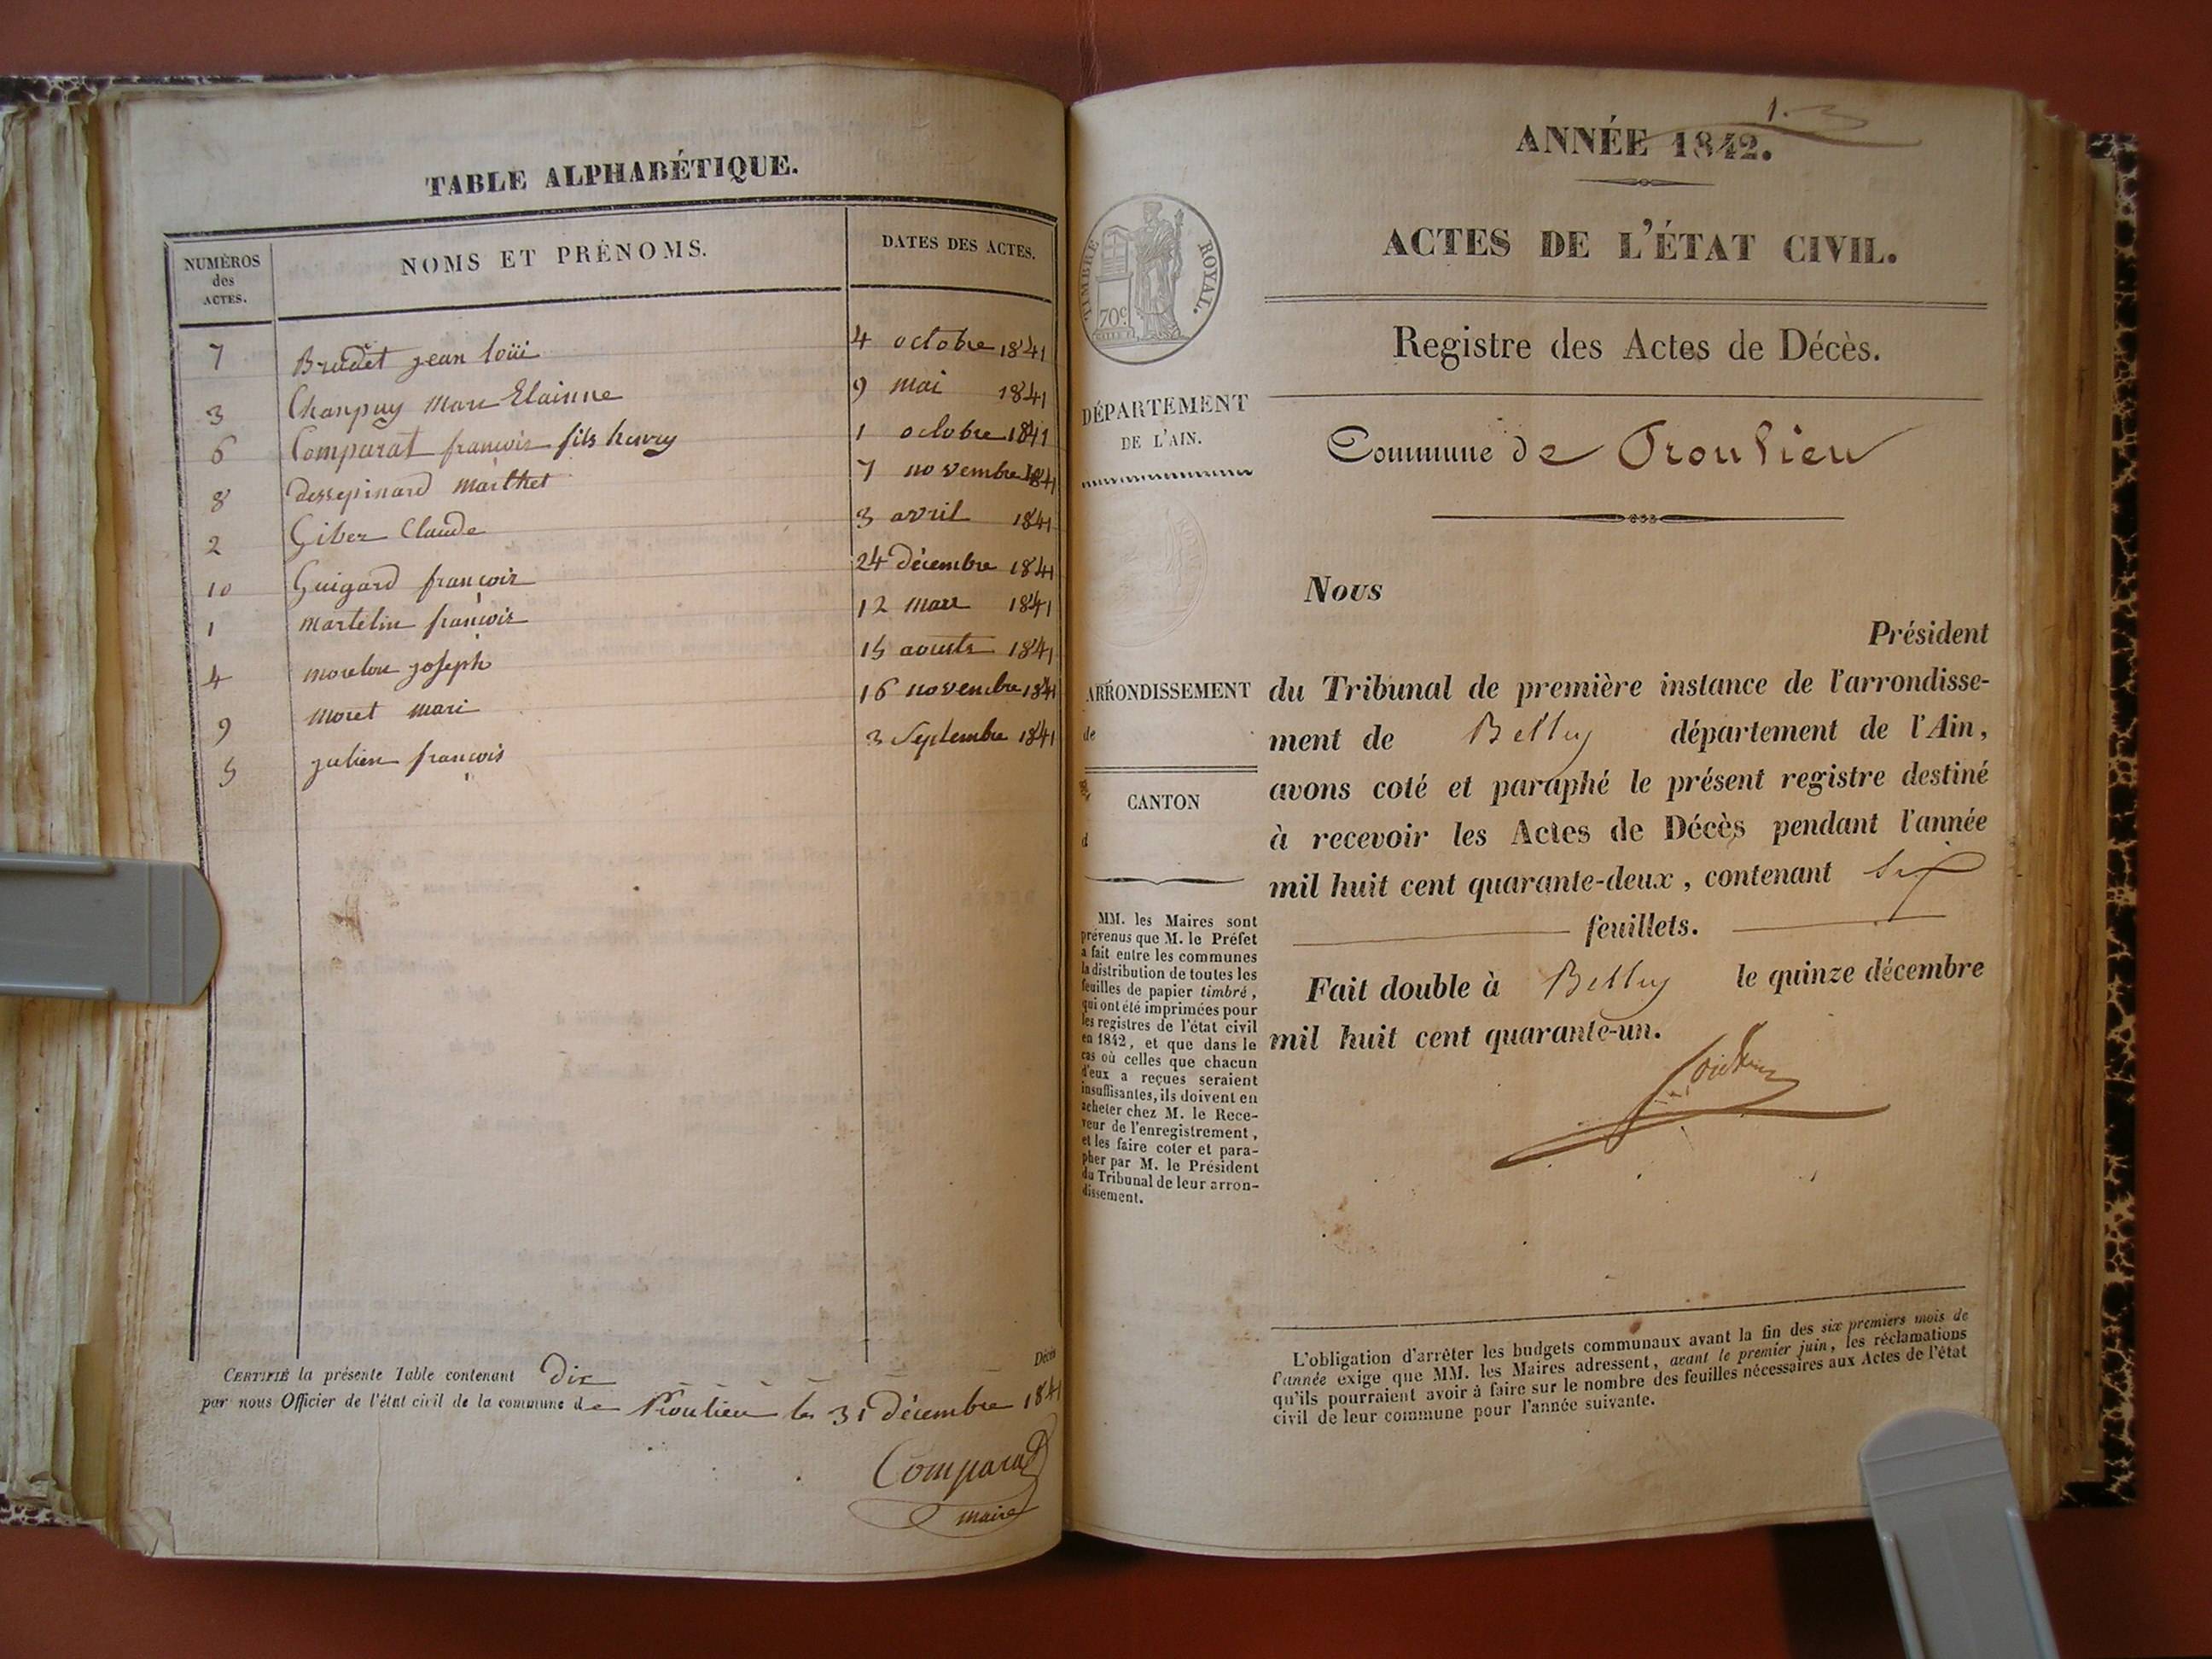 TABLE ALPHABÉTIQUE.
NUMÉROS des ACTES. NOMS ET PRÉNOMS. DATES DES ACTES.
7 Brudet jean loüi 4 octobre 1841
3 Chanpuy Marie Etainne 9 mai 1841
6 Comparat francois fils henry 1 octobre 1841
8 dessepinard Marthet 7 novembre 1841
2 Giber Claude 3 avril 1841
10 Guigard françois 24 décembre 1841
1 martelin françois 12 mars 1841
4 morelon joseph 15 aousts 1841
9 moret mari 16 novembre 1841
5 julien françois 3 Septembre 1841
CERTIFIÉ la présente Table contenant dix Décès
par nous Officier de l'état civil de la commune de Proulieu les 31 décembre 1841
Comparat
maire
1.
ANNÉE 1842.
ACTES DE L'ÉTAT CIVIL.
TIMBRE ROYAL.
70c
Registre des Actes de Décès.
DÉPARTEMENT
DE L'AIN.
Commune de Proulieu
Nous
Président
ARRONDISSEMENT
de
CANTON
d
du Tribunal de première instance de l'arrondisse-
ment de Belley département de l'Ain,
avons coté et paraphé le présent registre destiné
à recevoir les Actes de Décès pendant l'année
mil huit cent quarante-deux, contenant six
feuillets.
Fait double à Belley le quinze décembre
mil huit cent quarante-un.
MM. les Maires sont
prévenus que M. le Préfet
a fait entre les communes
la distribution de toutes les
feuilles de papier timbré,
qui ont été imprimées pour
les registres de l'état civil
en 1842, et que dans le
cas où celles que chacun
d'eux a reçues seraient
insuffisantes, ils doivent en
acheter chez M. le Rece-
veur de l'enregistrement,
et les faire coter et para-
pher par M. le Président
du Tribunal de leur arron-
dissement.
L'obligation d'arrêter les budgets communaux avant la fin des six premiers mois de
l'année exige que MM. les Maires adressent, avant le premier juin, les réclamations
qu'ils pourraient avoir à faire sur le nombre des feuilles nécessaires aux Actes de l'état
civil de leur commune pour l'année suivante.